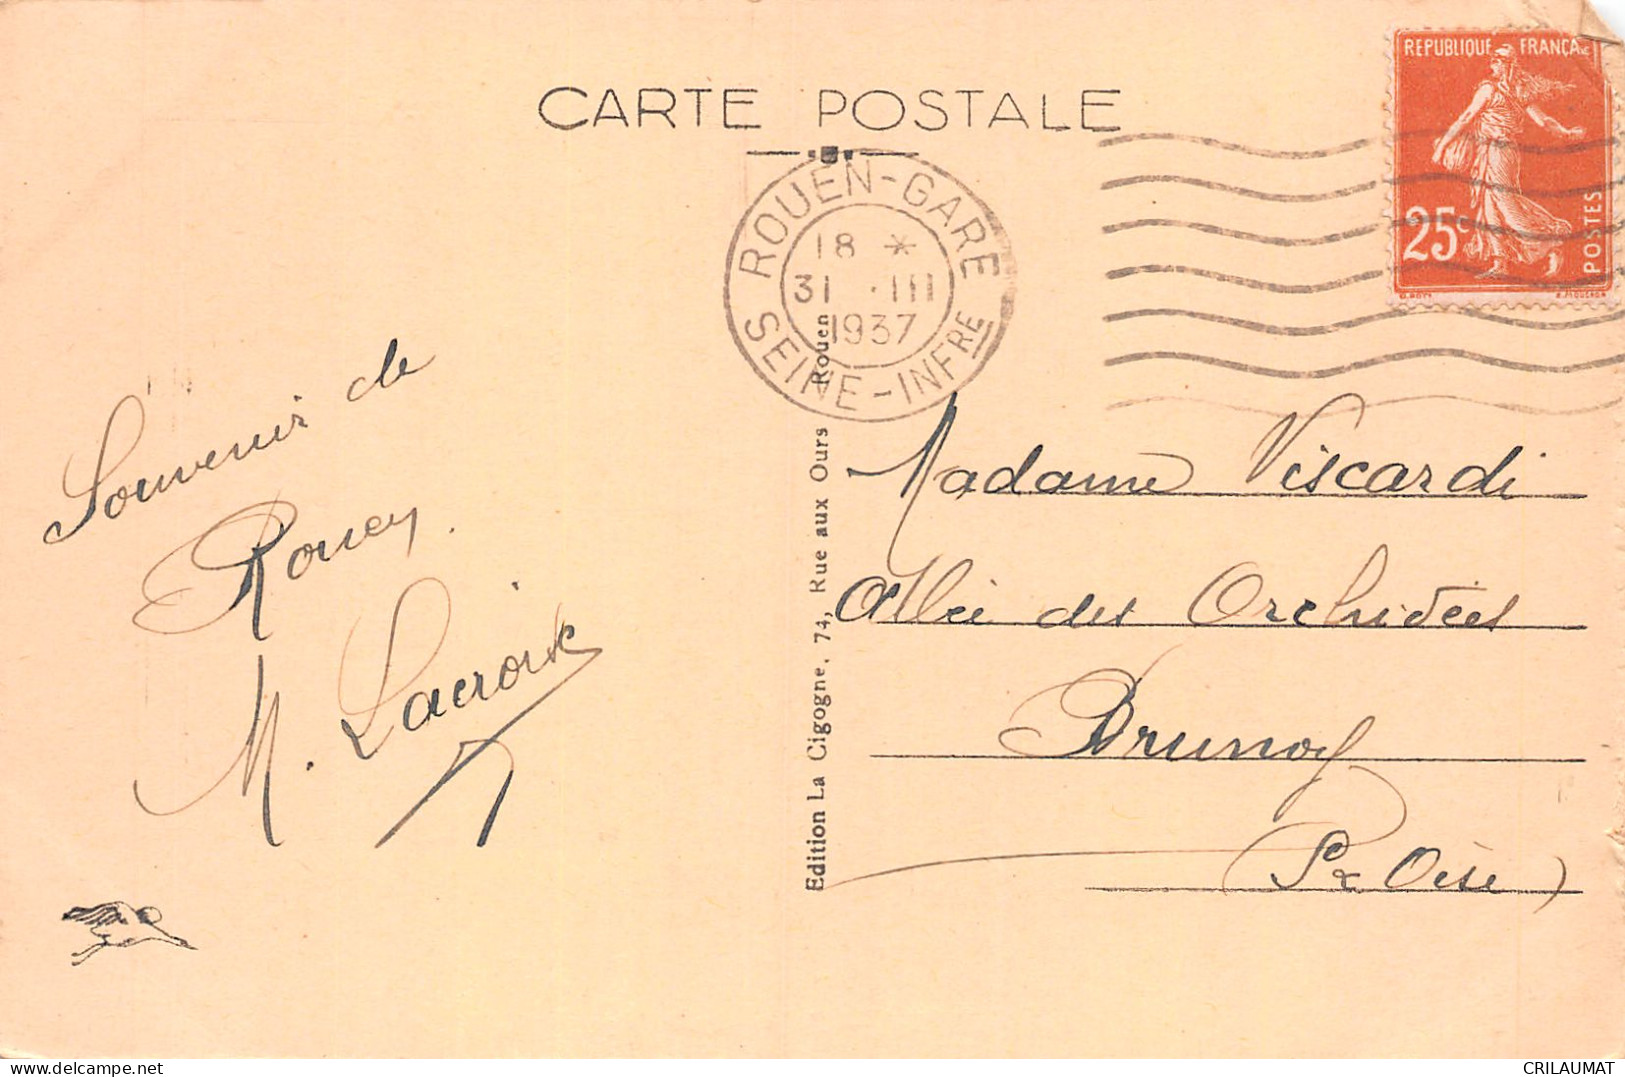 CARTE POSTALE
REPUBLIQUE FRANÇAISE
25c
POSTES
O. ROTY
ROUEN-GARE
18 *
31 · III
1937
SEINE-INFRE
Souvenir de
Rouen.
M. Lacroix
Edition La Cigogne, 74, Rue aux Ours Rouen
Madame Viscardi
Allée des Orchidées
Brunoy
(S & Oise)
delcampe.net
CRILAUMAT